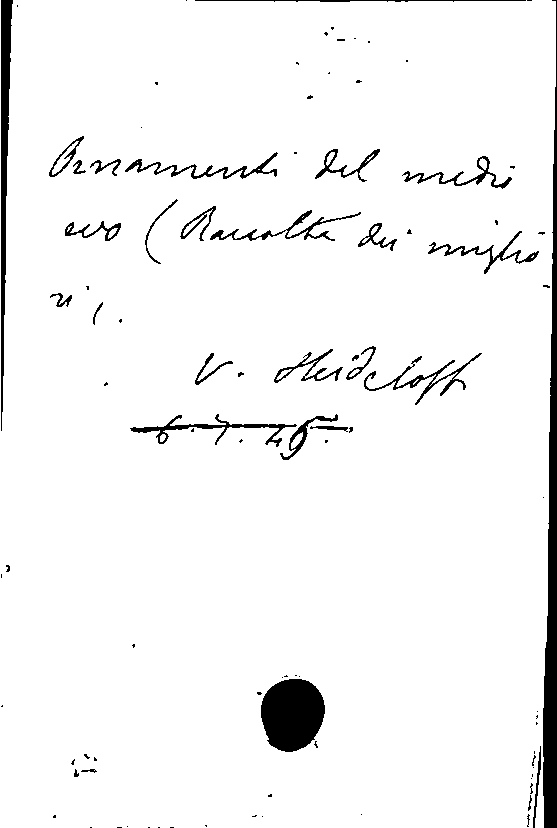 Ornamenti del medio
evo (Raccolta dei miglio
ri).
V. Heideloff
6.7.45.